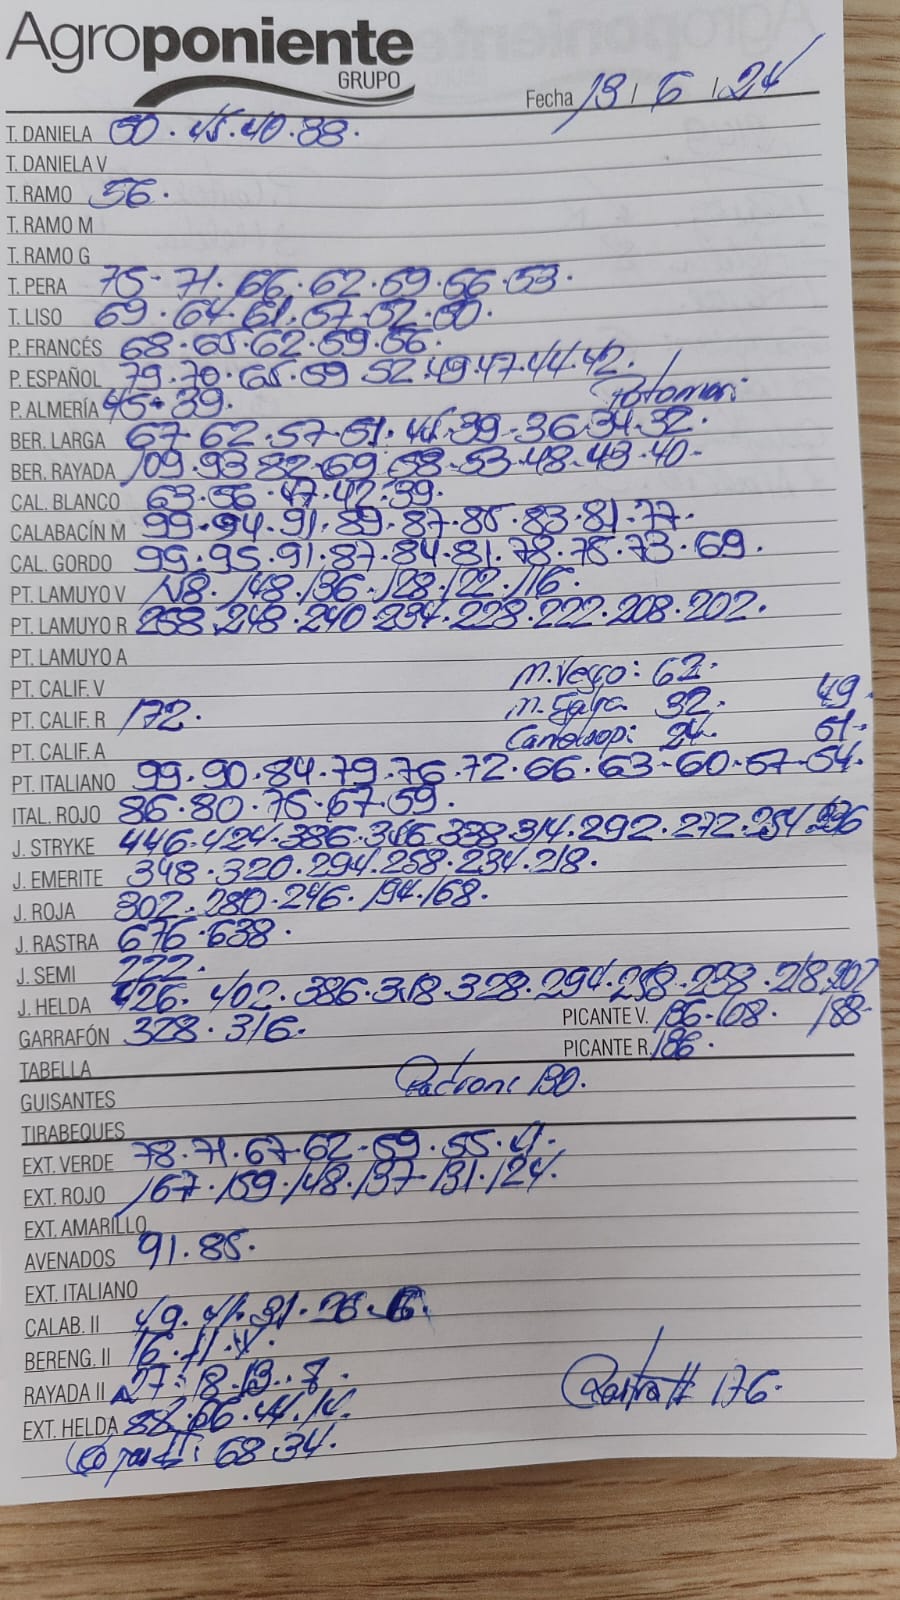 Agroponiente
GRUPO
Fecha 13 / 6 / 24
T. DANIELA 50 · 45 · 40 · 38 ·
T. DANIELA V
T. RAMO 56 ·
T. RAMO M
T. RAMO G
T. PERA 75 · 71 · 66 · 62 · 59 · 56 · 53 ·
T. LISO 69 · 64 · 61 · 57 · 52 · 50 ·
P. FRANCÉS 68 · 65 · 62 · 59 · 56 ·
P. ESPAÑOL 79 · 70 · 65 · 59 52 · 49 · 47 · 44 · 42 ·
P. ALMERÍA 45 · 39 ·
BER. LARGA 67 · 62 · 57 · 51 · 44 · 39 · 36 · 34 · 32 ·
BER. RAYADA 109 · 93 82 · 69 · 58 · 53 · 48 · 43 · 40 ·
CAL. BLANCO 63 · 56 · 47 · 42 · 39 ·
CALABACÍN M 99 · 94 · 91 · 89 · 87 · 85 · 83 · 81 · 77 ·
CAL. GORDO 99 · 95 · 91 · 87 · 84 · 81 · 78 · 75 · 73 · 69 ·
PT. LAMUYO V · 148 · 136 · 128 · 122 · 116 ·
PT. LAMUYO R 258 · 248 · 240 · 234 · 228 · 222 · 208 · 202 ·
PT. LAMUYO A
PT. CALIF. V 62 ·
PT. CALIF. R 172 · 32 · 49 ·
PT. CALIF. A 24 · 51 ·
PT. ITALIANO 99 · 90 · 84 · 79 · 76 · 72 · 66 · 63 · 60 · 57 · 54 ·
ITAL. ROJO 86 · 80 · 75 · 67 · 59 ·
J. STRYKE 446 · 424 · 386 · 338 · 314 · 292 · 272 · 254
J. EMERITE 348 · 320 · 294 · 258 · 234 · 218 ·
J. ROJA 302 · 280 · 246 · 194 · 168 ·
J. RASTRA 676 · 638 ·
J. SEMI 222 ·
J. HELDA 426 · 402 · 386 · 328 · 294 · 258 · 238 · 218
GARRAFÓN 328 · 316 · PICANTE V. 186 · 108 · 188 ·
TABELLA PICANTE R. 186 ·
GUISANTES Padron: 130 ·
TIRABEQUES
EXT. VERDE 78 · 71 · 67 · 62 · 59 · 55 · 41 ·
EXT. ROJO 167 · 159 · 148 · 137 · 131 · 124 ·
EXT. AMARILLO
AVENADOS 91 · 85 ·
EXT. ITALIANO
CALAB. II 49 · 41 · 31 · 26 ·
BERENG. II 16 · 11 ·
RAYADA II 27 · 18 · 13 · 8 ·
EXT. HELDA 88 · 66 · 44 · 14 · Rastra II 176 ·
68 34 ·